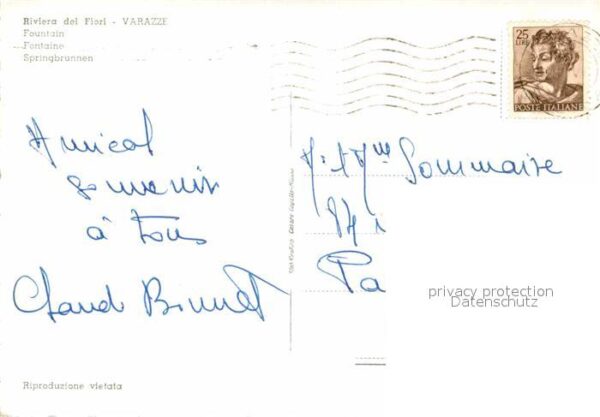 Riviera dei Fiori - VARAZZE
Fountain
Fontaine
Springbrunnen
25
LIRE
POSTE ITALIANE
Amical
souvenir
à tous
Claude
M. & Mme Sommaire
84
Pa
privacy protection
Datenschutz
Riproduzione vietata